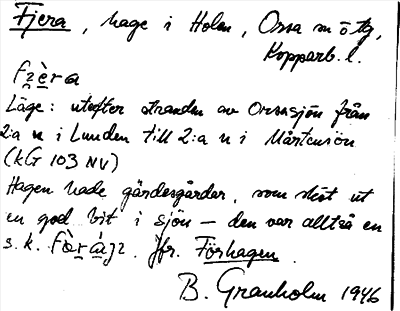 Fjera, hage i Holen, Orsa sn ö tg,
Kopparb. l.
Läge: utefter stranden av Orsasjön från
2:a n i Lunden till 2:a n i Mårtensön
(KG 103 NV)
Hagen hade gärdesgårdar, som sköt ut
en god bit i sjön — den var alltså en
s. k. Jfr. Förhagen
B. Granholm 1946